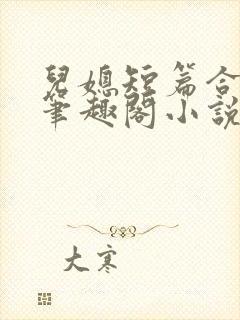 兒媳短篇合
筆趣閣小說
大寒